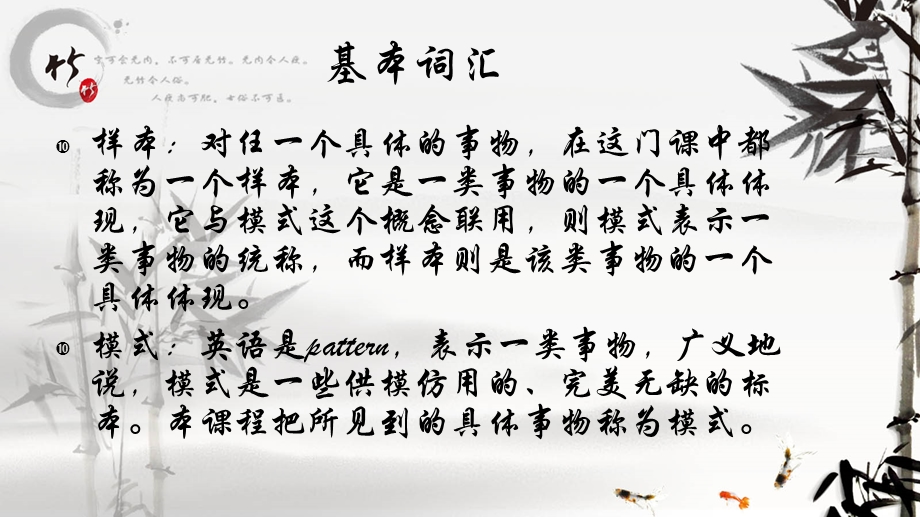 竹
宁可食无肉，不可居无竹。无肉令人瘦，
无竹令人俗。
人瘦尚可肥，士俗不可医。
基本词汇
⑩ 样本：对任一个具体的事物，在这门课中都
称为一个样本，它是一类事物的一个具体体
现，它与模式这个概念联用，则模式表示一
类事物的统称，而样本则是该类事物的一个
具体体现。
⑩ 模式：英语是pattern，表示一类事物，广义地
说，模式是一些供模仿用的、完美无缺的标
本。本课程把所见到的具体事物称为模式。